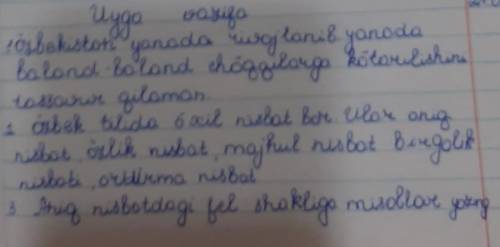 Uyga vazifa
1 Özbekiston yanada rivojlanib yanada
baland-baland chöqqilarga kötarilishini
tassavur qilaman.
2 özbek tilida 6 xil nisbat bor. Ular aniq
nisbat, özlik nisbat, majhul nisbat Birgalik
nisbati, orttirma nisbat
3 Aniq nisbatdagi fel shakliga misollar yozing